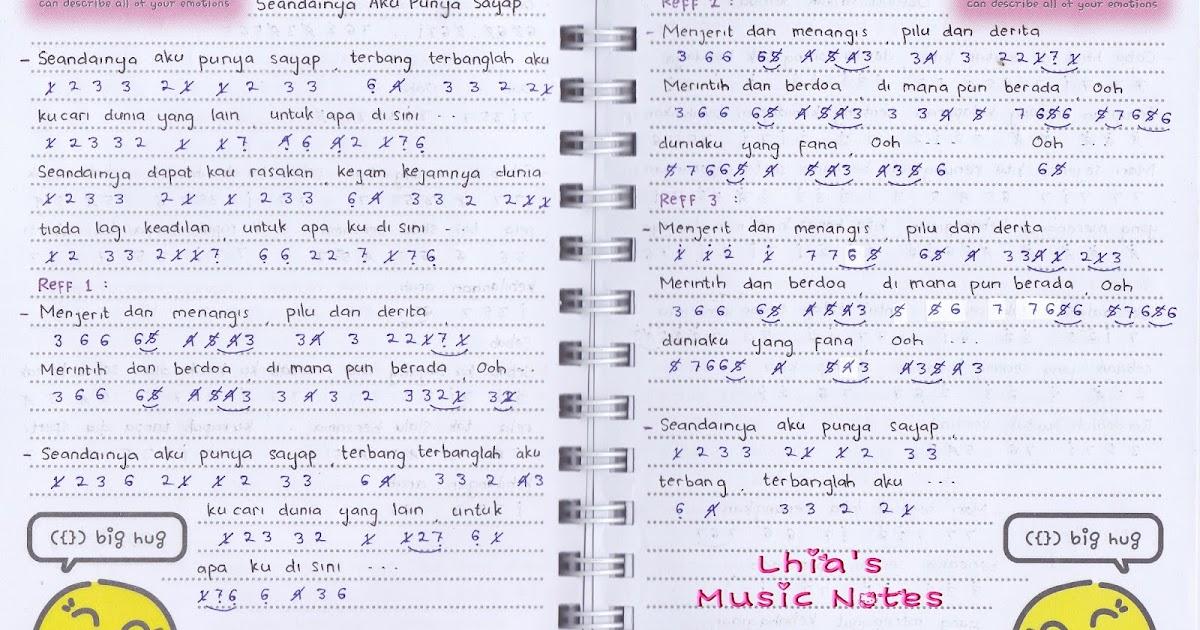 can describe all of your emotions
Seandainya Aku Punya Sayap
- Seandainya aku punya sayap, terbang terbanglah aku
1̸ 2 3 3 2 1̸ 1̸ 2 3 3 6 4̸ 3 3 2 2 1̸
ku cari dunia yang lain, untuk apa di sini ...
1̸ 2 3 3 2 1̸ 1̸ 7 4̸ 6 4̸ 2 1̸ 7 6
Seandainya dapat kau rasakan, kejam kejamnya dunia
1̸ 2 3 3 2 1̸ 1̸ 2 3 3 6 4̸ 3 3 2 2 1̸ 1̸
tiada lagi keadilan, untuk apa ku di sini ...
1̸ 2 3 3 2 1̸ 1̸ 7 6 6 2 2 7 1̸ 7 6
Reff 1 :
- Menjerit dan menangis, pilu dan derita,
3 6 6 6 5̸ 4̸ 5̸ 4̸ 3 3 4̸ 3 2 2 1̸ 7 1̸
Merintih dan berdoa, di mana pun berada, Ooh ...
3 6 6 6 5̸ 4̸ 5̸ 4̸ 3 3 4̸ 3 2 3 3 2 1̸ 3 1̸
- Seandainya aku punya sayap, terbang terbanglah aku
1̸ 2 3 6 2 1̸ 1̸ 2 3 3 6 4̸ 3 3 2 4̸ 3
ku cari dunia yang lain, untuk
1̸ 2 3 3 2 1̸ 1̸ 2 7 6 1̸
({}) big hug
apa ku di sini ...
1̸ 7 6 6 4̸ 3 6
can describe all of your emotions
Reff 2 :
- Menjerit dan menangis, pilu dan derita
3 6 6 6 5̸ 4̸ 5̸ 4̸ 3 3 4̸ 3 2 2 1̸ 7 1̸
Merintih dan berdoa, di mana pun berada, Ooh
3 6 6 6 5̸ 4̸ 5̸ 4̸ 3 3 3 4̸ 5̸ 7 6 5̸ 6 5̸ 7 6 5̸ 6
duniaku yang fana, Ooh .... Ooh ...
5̸ 7 6 6 5̸ 4̸ 5̸ 4̸ 3 4̸ 3 5̸ 6 6 5̸
Reff 3 :
- Menjerit dan menangis, pilu dan derita
1̸ 1̸ 2 1̸ 7 7 6 5̸ 6 5̸ 4̸ 3 3 4̸ 1̸ 2 1̸ 3
Merintih dan berdoa, di mana pun berada, Ooh
3 6 6 6 5̸ 4̸ 5̸ 4̸ 3 5̸ 5̸ 6 7 7 6 5̸ 6 5̸ 7 6 5̸ 6
duniaku yang fana, Ooh ...
5̸ 7 6 6 5̸ 4̸ 5̸ 4̸ 3 4̸ 3 5̸ 4̸ 3
- Seandainya aku punya sayap,
1̸ 2 3 3 2 1̸ 1̸ 2 3 3
terbang, terbanglah aku ...
6 4̸ 3 3 2 2 1̸
({}) big hug
Lhia's
Music Notes